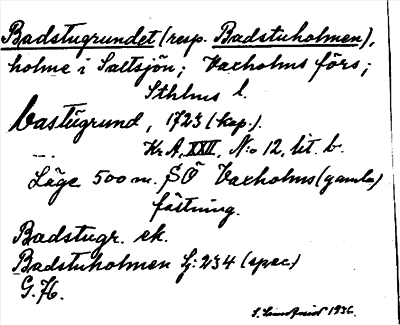 Badstugrundet (resp. Badstuholmen),
holme i Saltsjön; Vaxholms förs;
Sthlms l.
bastugrund, 1723 (kop.).
Kr A, XXII, No 12, lit. b.
Läge 500 m. SÖ Vaxholms (gamla)
fästning.
Badstugr. ek.
Badstuholmen Sj: 234 (spec.)
G. 76.
1936.